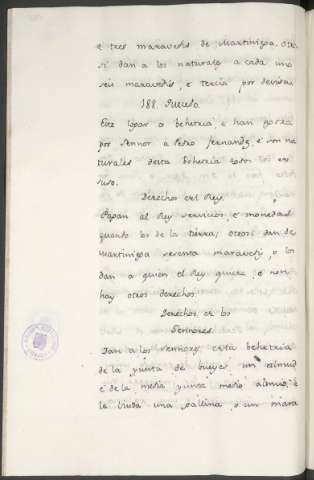 e tres maravedis de Martiniega. Otro
si dan a los naturales a cada uno
seis maravedis, e tercia por devisa.
188.
Este logar es behetria e han agora
por Sennor a Pedro Fernandez, e son na
turales desta behetria todos los de
suso.
Derechos del Rey.
Pagan al Rey servicios, e monedas
quanto los de la tierra; otrosi dan de
Martiniega sesenta maravedis, e los
dan a quien el Rey quiere, e non
hay otros derechos.
Derechos de los
Sennores
Dan a los sennores desta behetria
de la yunta de bueyes un almud
e de la media yunta medio almud, e
la viuda una gallina, o un mara